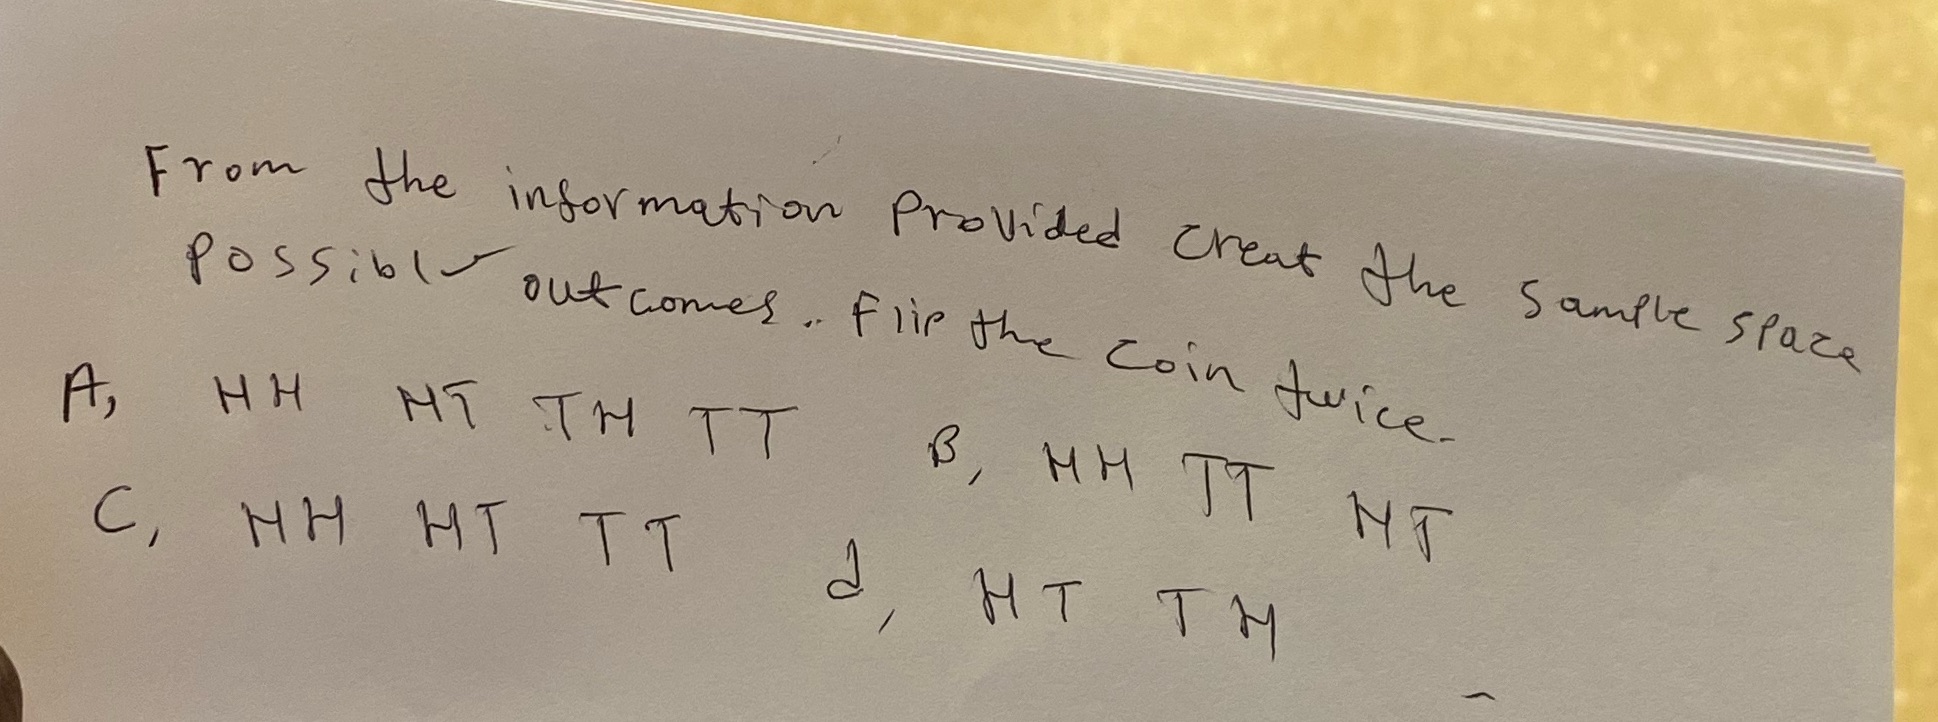 From the information Provided creat the Sample space
Possible outcomes.. Flip the coin twice.
A, HH HT TH TT B, HH TT HT
C, HH HT TT d, HT TH